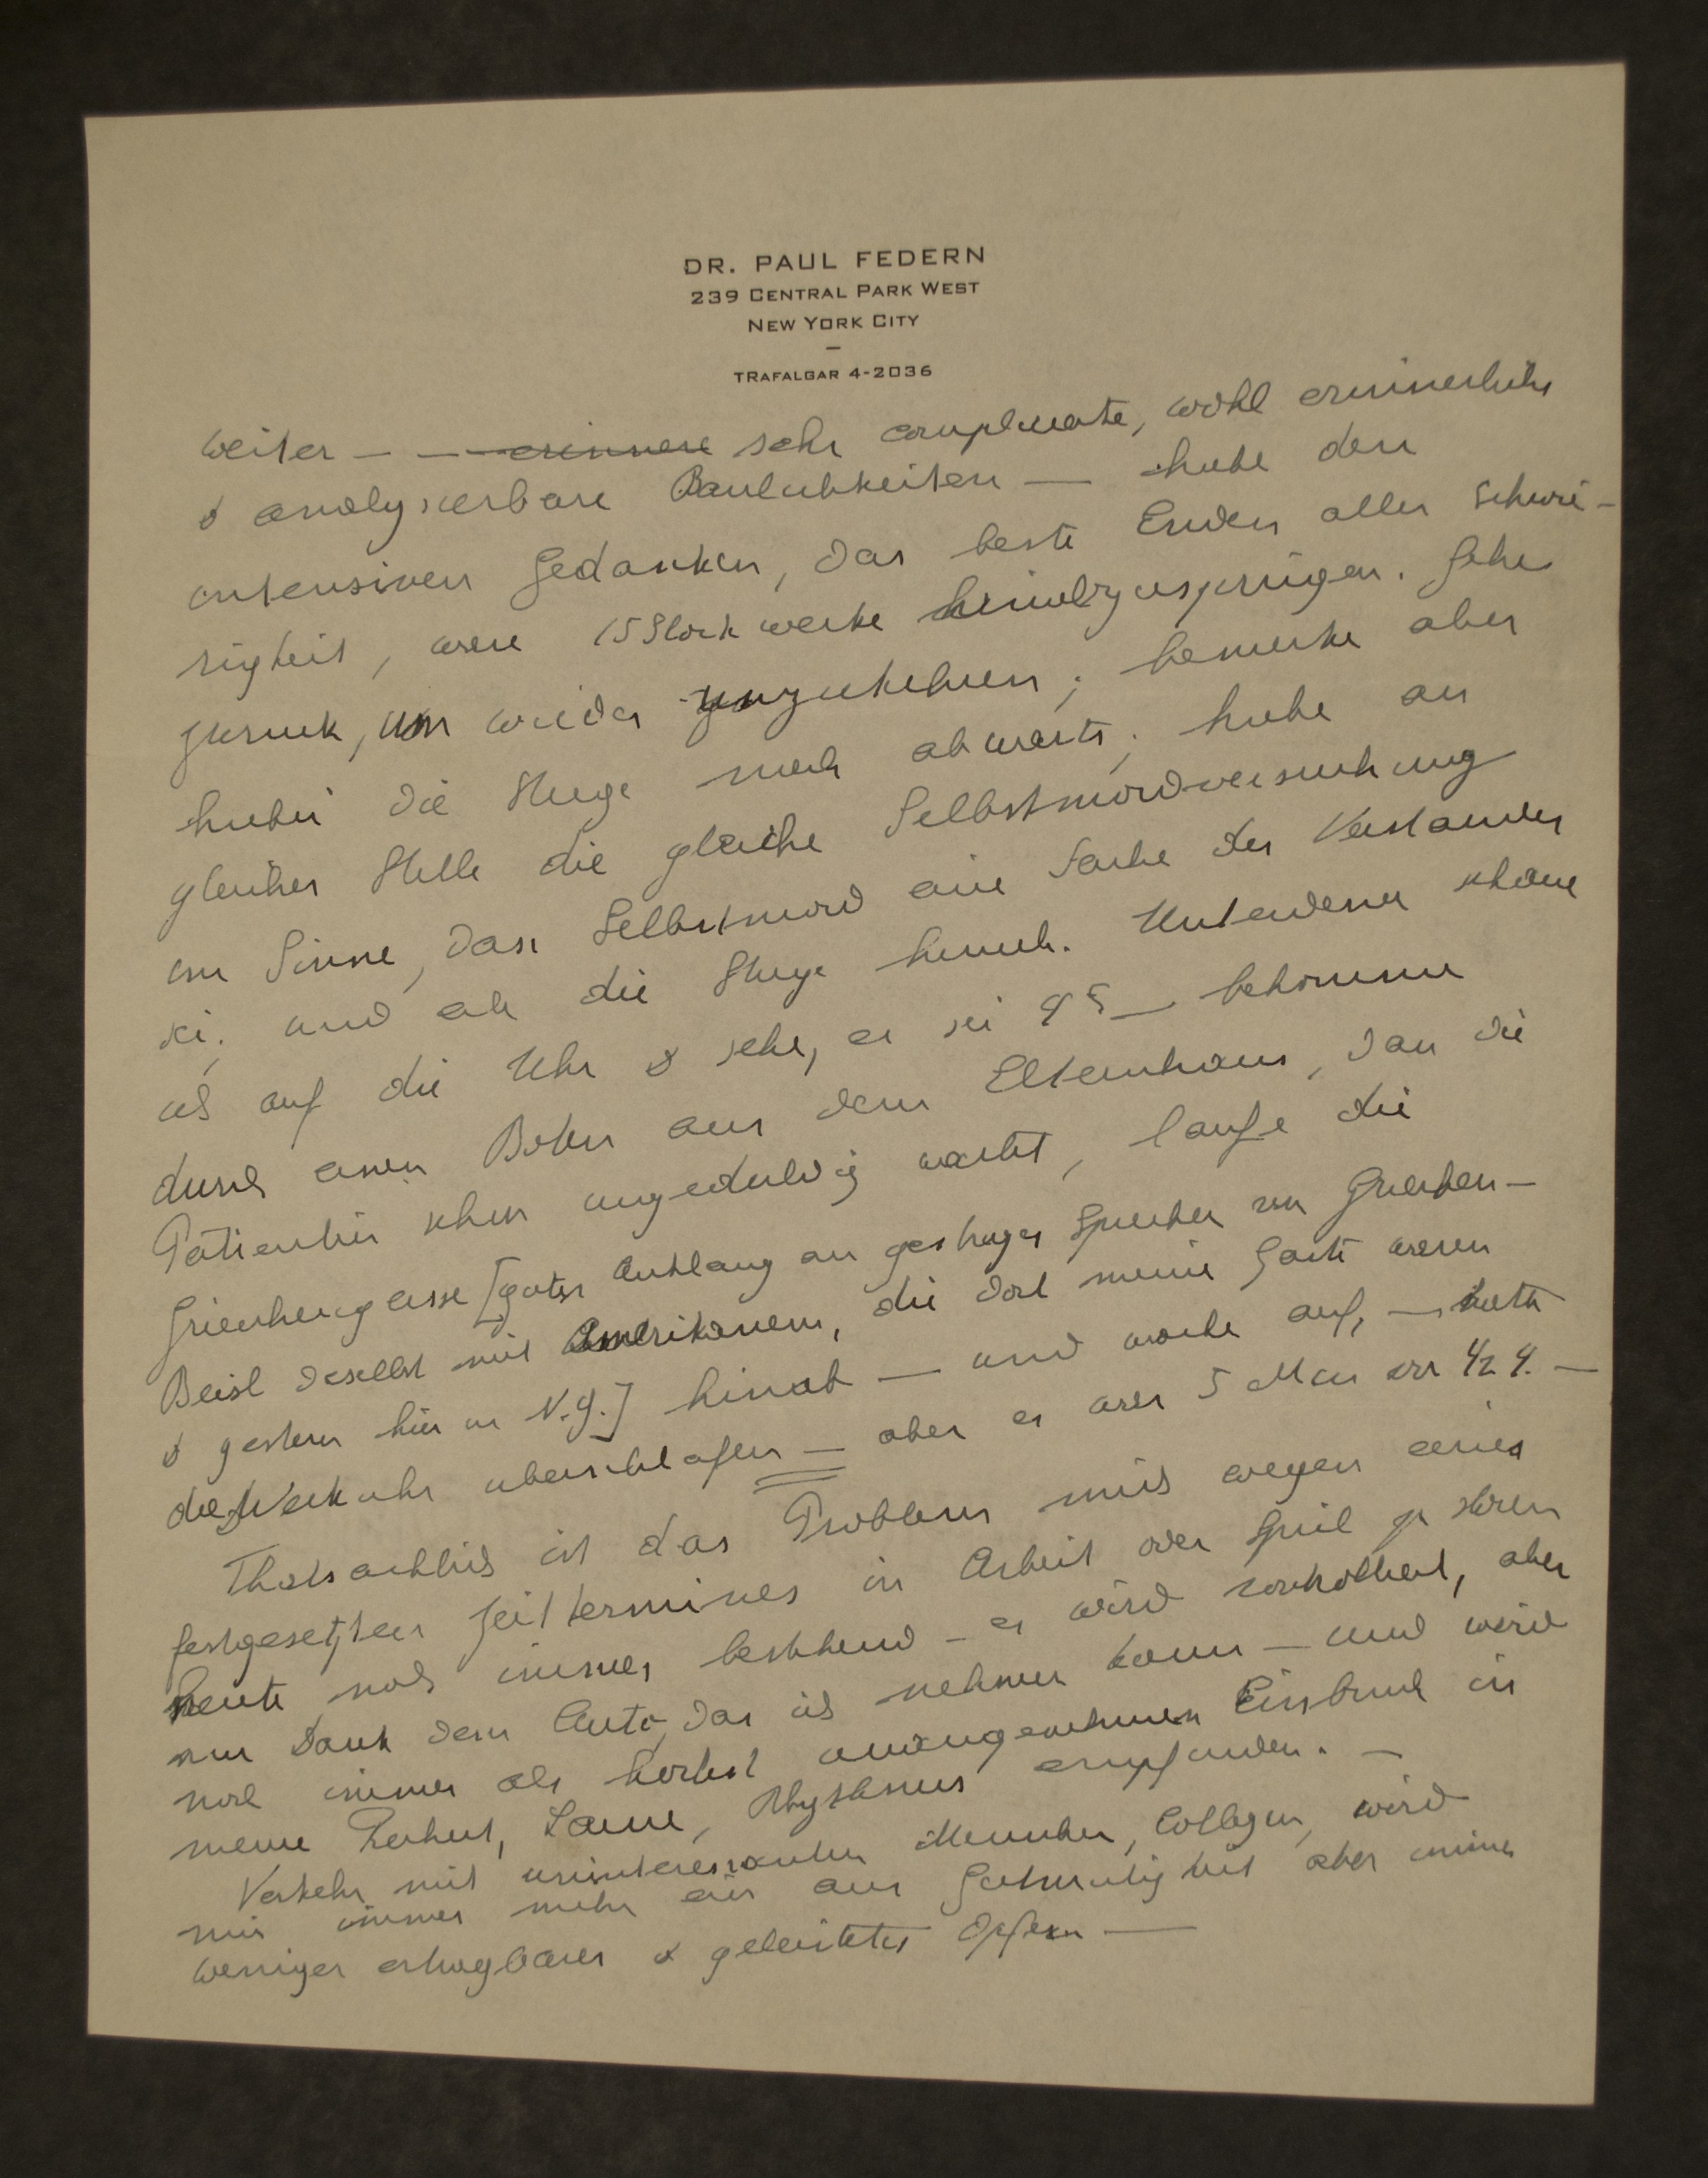 DR. PAUL FEDERN
239 CENTRAL PARK WEST
NEW YORK CITY
TRAFALGAR 4-2036
weiter — — erinnere sehr complicate, wohl erinnerliche
& analysierbare Baulichkeiten — habe den
intensiven Gedanken, das beste Enden aller Schwie-
rigkeit, wäre 15 Stockwerke hinabzuspringen. Gehe
zuruck, um wieder umzukehren; bemerke aber
hiebei die Stiege nach abwärts; habe an
gleicher Stelle die gleiche Selbstmordversuchung
im Sinne, dass Selbstmord eine Sache des Verstandes
sei; und eile die Stiege hinab. Unterdessen schaue
ich auf die Uhr & sehe, es sei 9 5 — bekomme
durch einen Boten aus dem Elternhaus, dass die
Patientin schon ungeduldig wartet, laufe die
Griechengasse [guter Anklang an gestriges Speisen im Griechen-
Beisl daselbst mit Amerikanern, die dort meine Gäste waren
& gestern hier in N.Y.] hinab — und wache auf, — hatte
die Weckuhr überschlafen — aber es war 5 Min vor 1/2 9. —
Thatsächlich ist das Problem mich wegen eines
festgesetzten Zeittermines in Arbeit oder Spiel zu stören
heute noch immer bestehend — es wird controlliert, aber
nur Dank dem Auto, das ich nehmen kann — und wird
noch immer als höchst unangenehmen Einbruch in
meine Freiheit, Laune, Rhythmus empfunden. —
Verkehr mit uninteressanten Menschen, Collegen, wird
mir immer mehr ein aus Gutmutigkeit aber immer
weniger ertragbares & geleistetes Opfern —